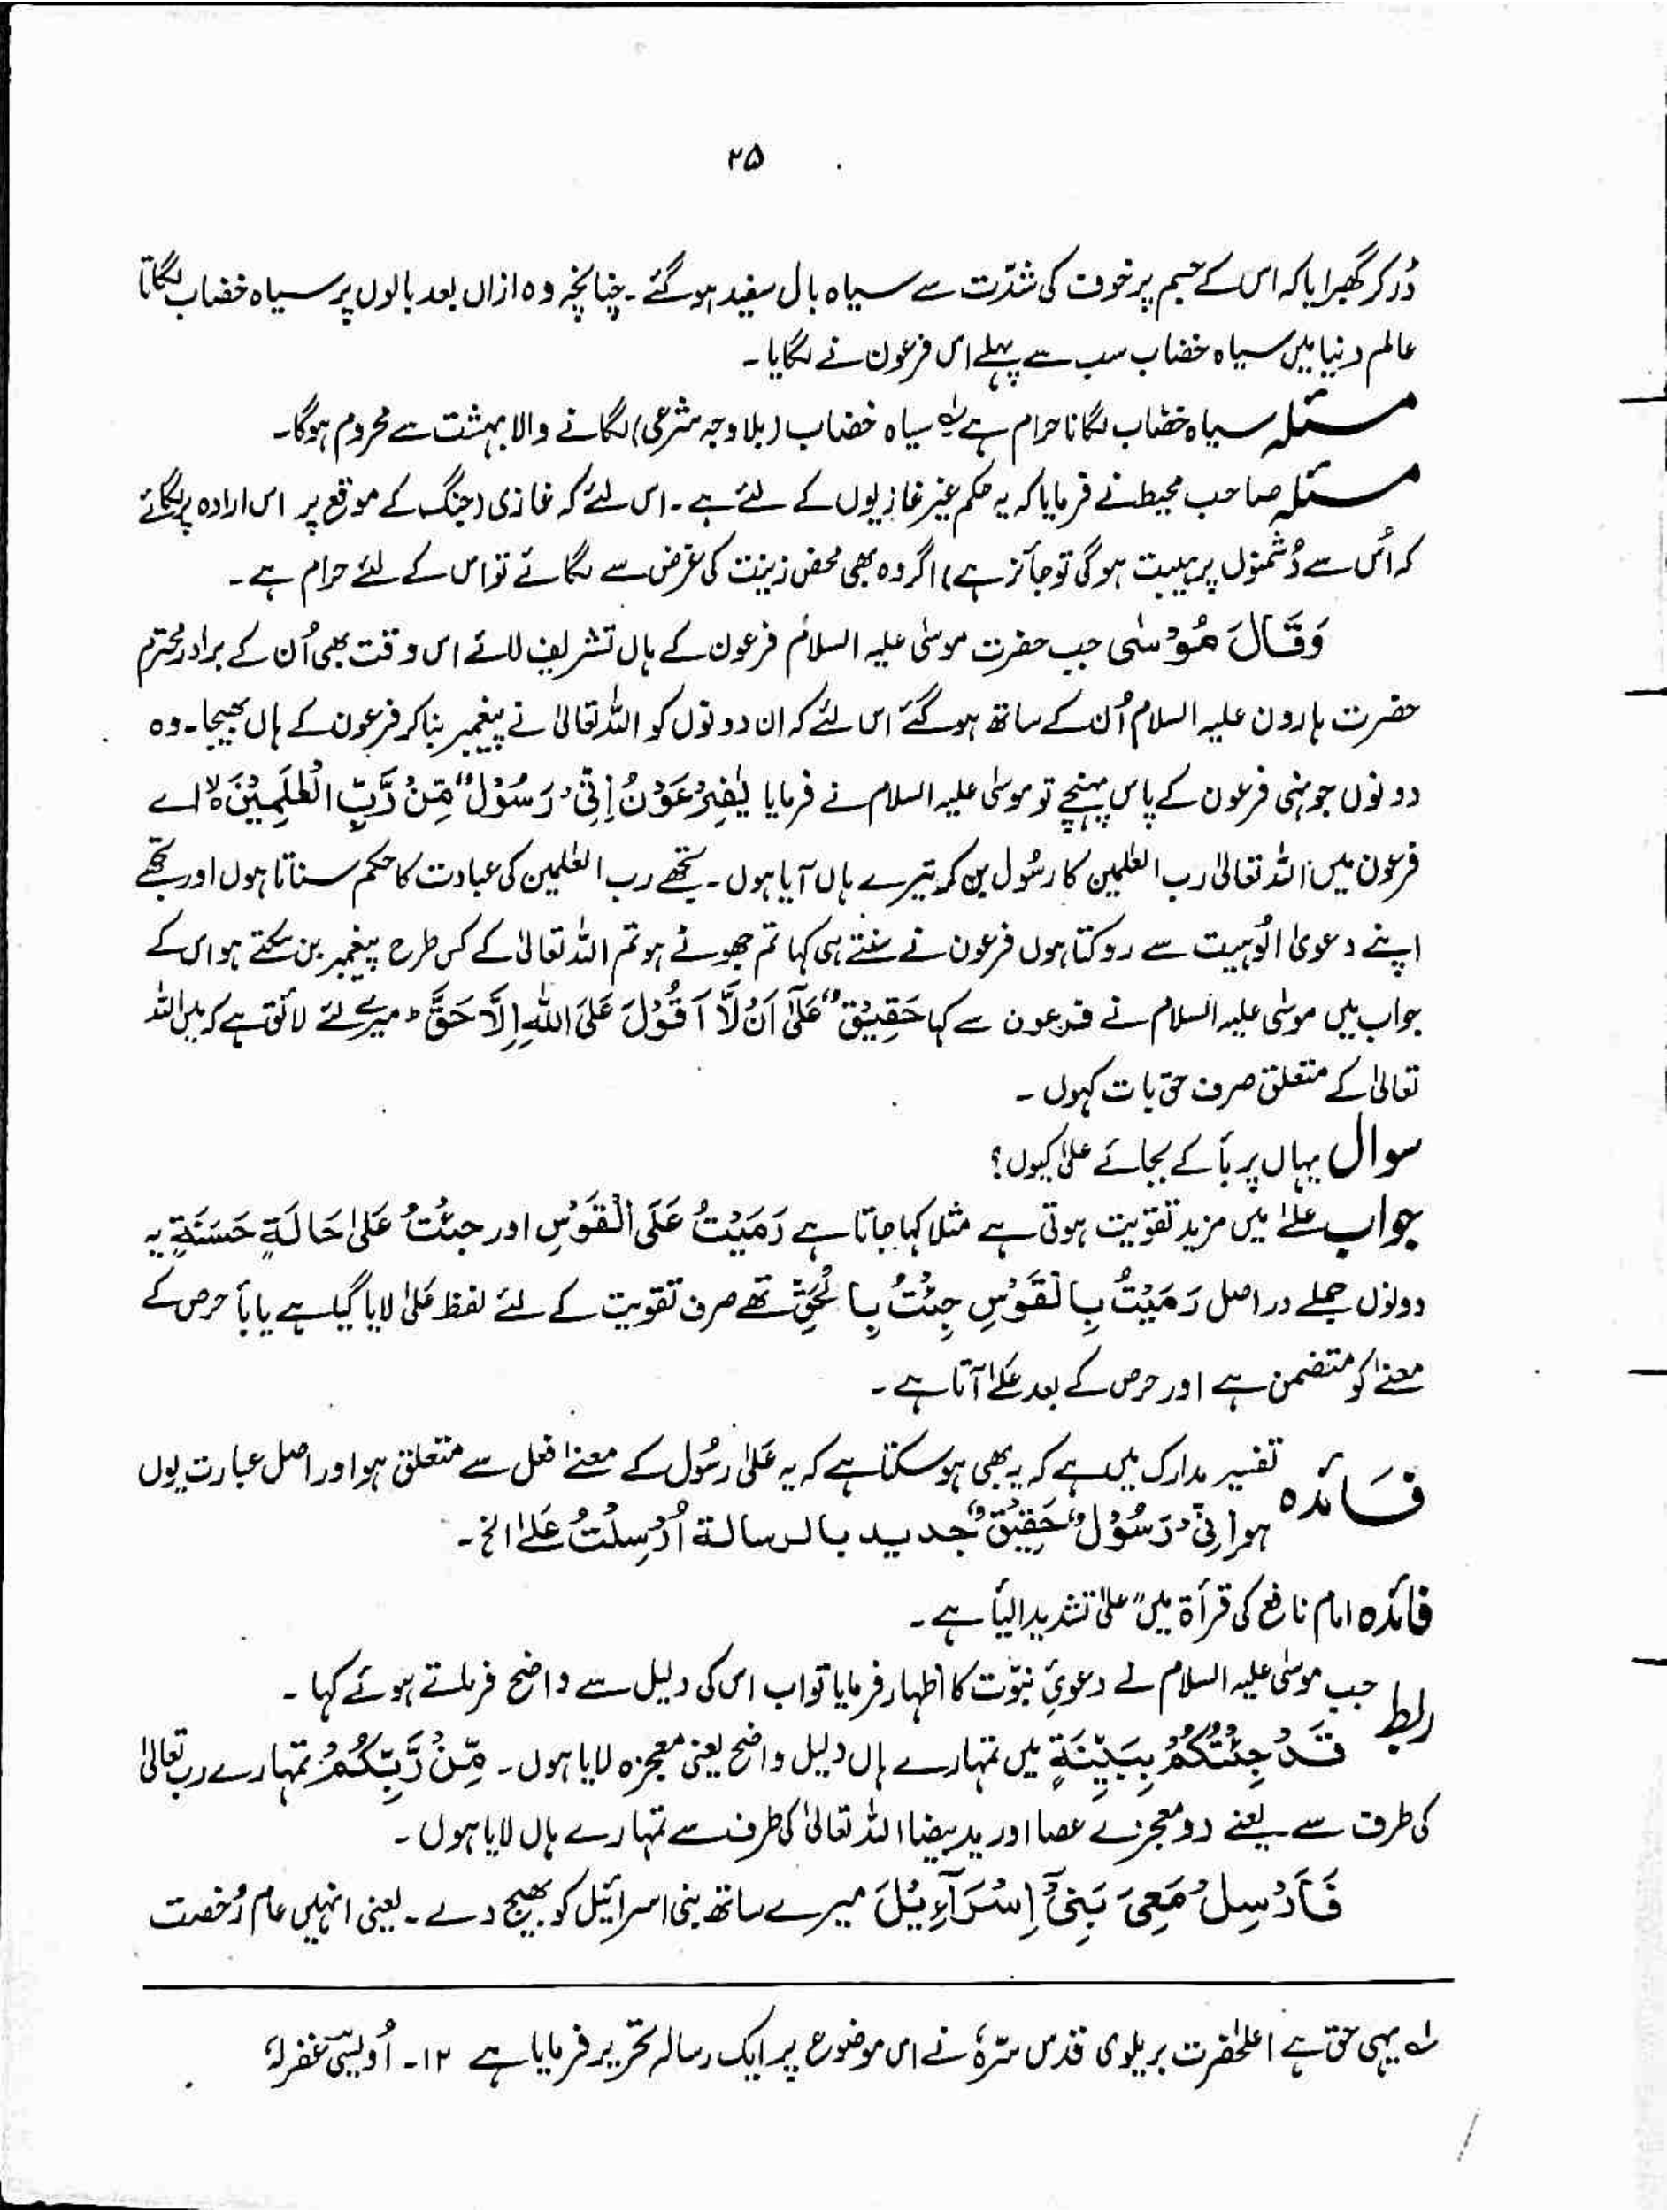 ۲۵
ڈر کر گھبرایا کہ اس کے جسم پر خوف کی شدّت سے سیاہ بال سفید ہو گئے ۔ چنانچہ وہ ازاں بعد بالوں پر سیاہ خضاب لگاتا
عالم دنیا میں سیاہ خضاب سب سے پہلے اس فرعون نے لگایا ۔
مسئلہ سیاہ خضاب لگانا حرام ہے لہ سیاہ خضاب (بلا وجہ شرعی) لگانے والا بہشت سے محروم ہوگا۔
مسئلہ صاحب محیط نے فرمایا کہ یہ حکم غیر غازیوں کے لئے ہے ۔ اس لئے کہ غازی (جنگ کے موقع پر اس ارادہ پر لگائے
کہ اُس سے دُشمنوں پر ہیبت ہو گی تو جائز ہے) اگر وہ بھی محض زینت کی غرض سے لگائے تو اس کے لئے حرام ہے ۔
وَقَالَ مُوْسٰی جب حضرت موسیٰ علیہ السلام فرعون کے ہاں تشریف لائے اس وقت بھی اُن کے برادر محترم
حضرت ہارون علیہ السلام اُن کے ساتھ ہو گئے اس لئے کہ ان دونوں کو اللہ تعالیٰ نے پیغمبر بنا کر فرعون کے ہاں بھیجا ۔ وہ
دونوں جونہی فرعون کے پاس پہنچے تو موسیٰ علیہ السلام نے فرمایا یٰفِرْعَوْنُ اِنِّیْ رَسُوْلٌ مِّنْ رَّبِّ الْعٰلَمِیْنَ ہ لا اے
فرعون میں اللہ تعالیٰ رب العٰلمین کا رسُول بن کر تیرے ہاں آیا ہوں ۔ تجھے رب العٰلمین کی عبادت کا حکم سناتا ہوں اور تجھے
اپنے دعویٰ اُلُوہیت سے روکتا ہوں فرعون نے سنتے ہی کہا تم جھوٹے ہو تم اللہ تعالیٰ کے کس طرح پیغمبر بن سکتے ہو اس کے
جواب میں موسیٰ علیہ السلام نے فرعون سے کہا حَقِیْقٌ عَلٰٓی اَنْ لَّآ اَقُوْلَ عَلَی اللّٰہِ اِلَّا حَقَّ ط میرے لئے لائق ہے کہ میں اللہ
تعالیٰ کے متعلق صرف حق بات کہوں ۔
سوال یہاں پر بأ کے بجائے علیٰ کیوں؟
جواب علیٰ میں مزید تقویت ہوتی ہے مثلا کہا جاتا ہے رَمَیْتُ عَلَی الْقَوْسِ اور جِئْتُ عَلیٰ حَالَةٍ حَسَنَةٍ یہ
دونوں جملے دراصل رَمَیْتُ بِالْقَوْسِ جِئْتُ بِالْحَقِّ تھے صرف تقویت کے لئے لفظ عَلیٰ لایا گیا ہے یا بأ حرص کے
معنےٰ کو متضمن ہے اور حرص کے بعد عَلیٰ آتا ہے ۔
فائدہ تفسیر مدارک میں ہے کہ یہ بھی ہو سکتا ہے کہ یہ عَلیٰ رسُول کے معنےٰ فعل سے متعلق ہو اور اصل عبارت یوں
ہو اِنِّیْ رَسُوْلٌ حَقِیْقٌ جدید بالرسالة اُرْسِلْتُ عَلیٰ الخ ۔
فائدہ امام نافع کی قرأة میں ” علیّ تشدید الیأ ہے ۔
ربط جب موسیٰ علیہ السلام نے دعویٰ نبوّت کا اظہار فرمایا تو اب اس کی دلیل سے واضح فرماتے ہوئے کہا ۔
قَدْ جِئْتُکُمْ بِبَیِّنَةٍ میں تمہارے ہاں دلیل واضح یعنی معجزہ لایا ہوں ۔ مِّنْ رَّبِّکُمْ تمہارے رب تعالیٰ
کی طرف سے یعنے دو معجزے عصا اور ید بیضا اللہ تعالیٰ کی طرف سے تمہارے ہاں لایا ہوں ۔
فَاَرْسِلْ مَعِیَ بَنِیْٓ اِسْرَآءِیْلَ میرے ساتھ بنی اسرائیل کو بھیج دے ۔ یعنی انہیں عام رُخصت
لہ یہی حق ہے اعلیٰحضرت بریلوی قدس سّرہٗ نے اس موضوع پر ایک رسالہ تحریر فرمایا ہے ۱۲۔ اُویسی غفرلہٗ